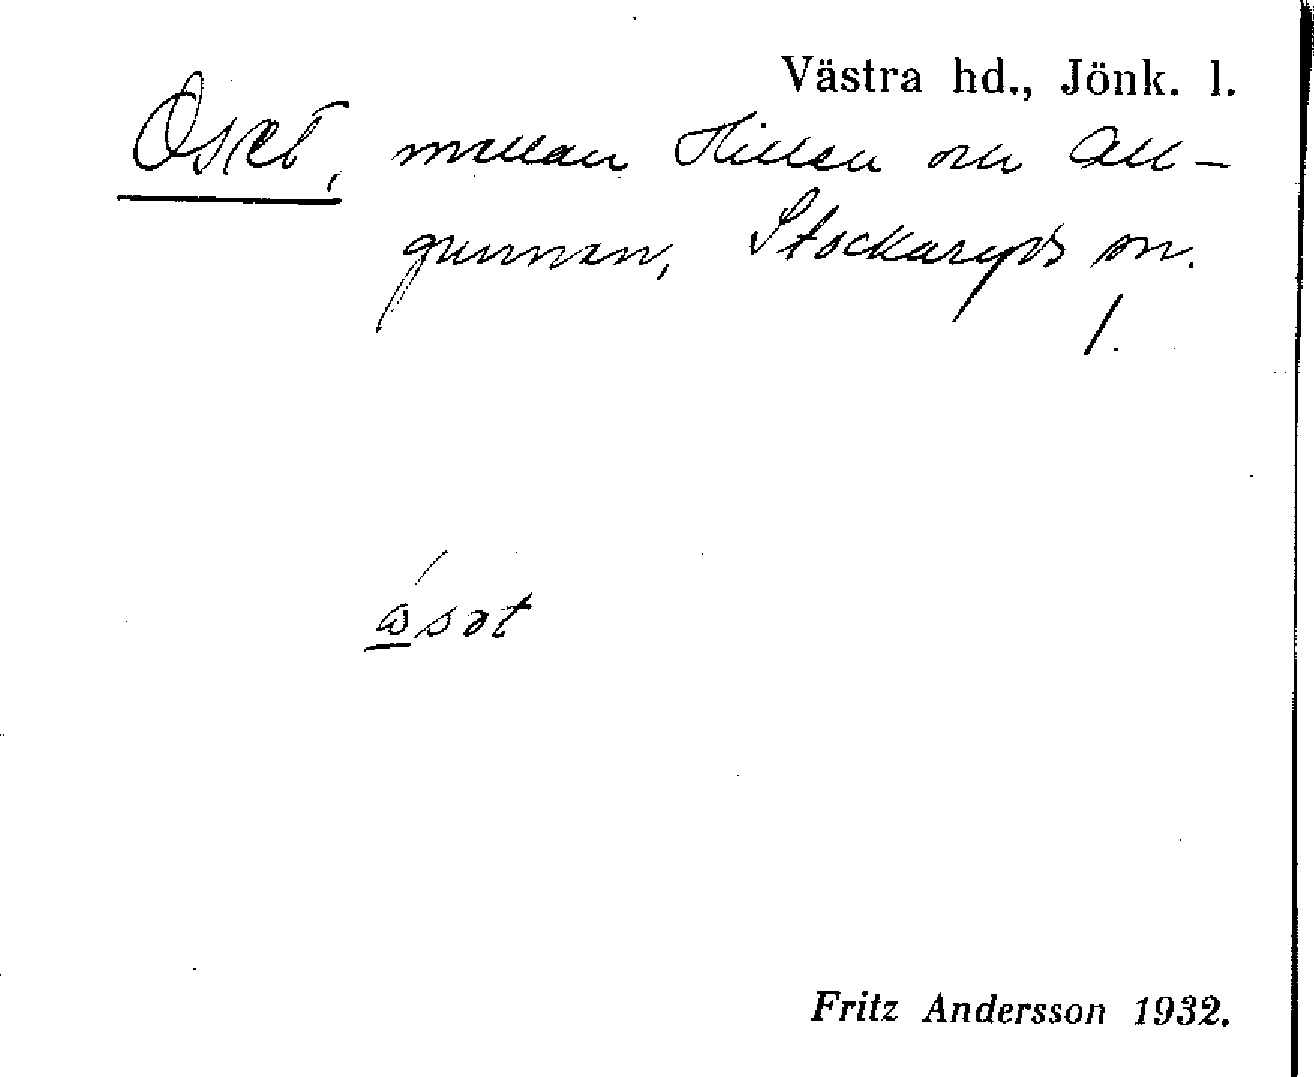 Västra hd., Jönk. l.
Oset, mellan Hillen och All-
gunnen, Stockaryds sn.
1.
ósət
Fritz Andersson 1932.